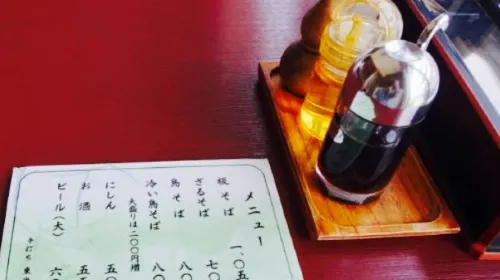 メニュー
板そば 一、〇五
ざるそば 七〇
鳥そば 八〇
冷い鳥そば 八〇
大盛りは二〇〇円増
にしん 五〇
お酒 五
ビール(大) 六
手打ち